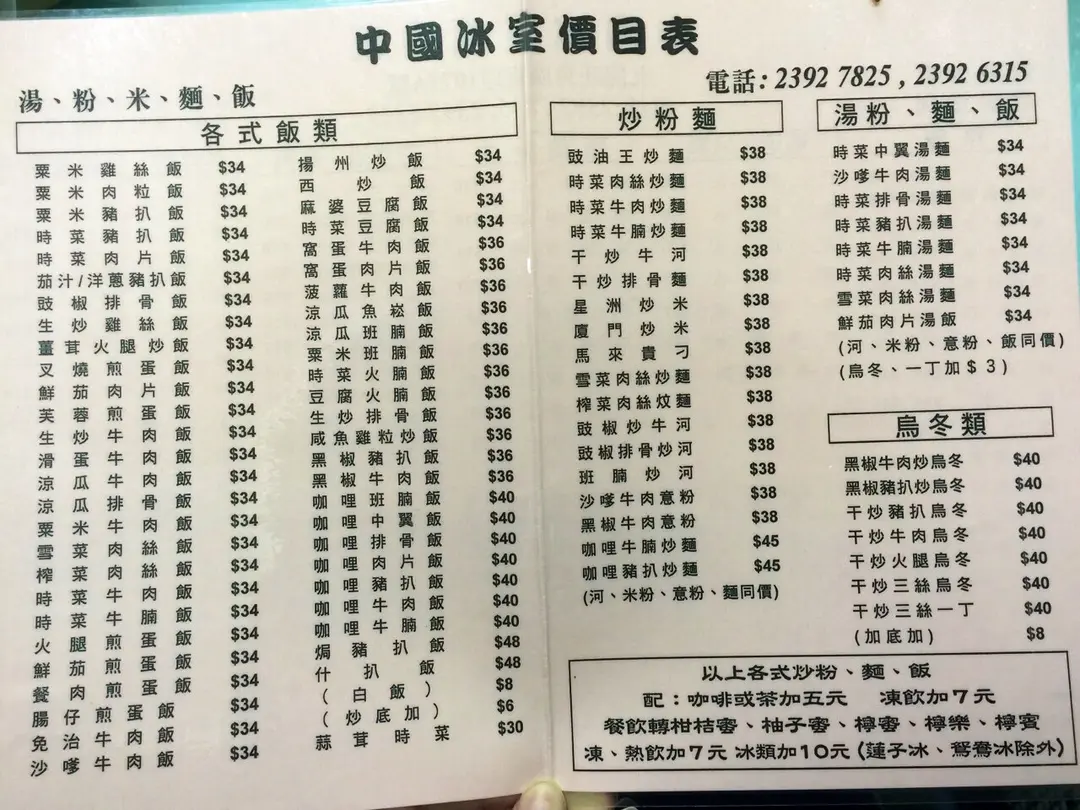 中國冰室價目表
電話: 2392 7825 , 2392 6315
湯、粉、米、麵、飯
各式飯類
粟米雞絲飯 $34
粟米肉粒飯 $34
粟米豬扒飯 $34
時菜豬扒飯 $34
時菜肉片飯 $34
茄汁/洋蔥豬扒飯 $34
豉椒排骨飯 $34
生炒雞絲飯 $34
薑茸火腿炒飯 $34
叉燒煎蛋飯 $34
鮮茄肉片飯 $34
芙蓉煎蛋飯 $34
生炒牛肉飯 $34
滑蛋牛肉飯 $34
涼瓜牛肉飯 $34
涼瓜排骨飯 $34
粟米牛肉飯 $34
雪菜肉絲飯 $34
榨菜肉絲飯 $34
時菜牛肉飯 $34
時菜牛腩飯 $34
火腿煎蛋飯 $34
鮮茄煎蛋飯 $34
餐肉煎蛋飯 $34
腸仔煎蛋飯 $34
免治牛肉飯 $34
沙嗲牛肉飯 $34
揚州炒飯 $34
西炒飯 $34
麻婆豆腐飯 $34
時菜豆腐飯 $34
窩蛋牛肉飯 $36
窩蛋肉片飯 $36
菠蘿牛肉飯 $36
涼瓜魚崧飯 $36
涼瓜班腩飯 $36
粟米班腩飯 $36
時菜火腩飯 $36
豆腐火腩飯 $36
生炒排骨飯 $36
咸魚雞粒炒飯 $36
黑椒豬扒飯 $36
黑椒牛肉飯 $36
咖哩班腩飯 $40
咖哩中翼飯 $40
咖哩排骨飯 $40
咖哩肉片飯 $40
咖哩豬扒飯 $40
咖哩牛肉飯 $40
咖哩牛腩飯 $40
焗豬扒飯 $48
什扒飯 $48
(白飯) $8
(炒底加) $6
蒜茸時菜 $30
炒粉麵
豉油王炒麵 $38
時菜肉絲炒麵 $38
時菜牛肉炒麵 $38
時菜牛腩炒麵 $38
干炒牛河 $38
干炒排骨麵 $38
星洲炒米 $38
廈門炒米 $38
馬來貴刁 $38
雪菜肉絲炒麵 $38
榨菜肉絲炆麵 $38
豉椒炒牛河 $38
豉椒排骨炒河 $38
班腩炒河 $38
沙嗲牛肉意粉 $38
黑椒牛肉意粉 $38
咖喱牛腩炒麵 $45
咖喱豬扒炒麵 $45
(河、米粉、意粉、麵同價)
湯粉、麵、飯
時菜中翼湯麵 $34
沙嗲牛肉湯麵 $34
時菜排骨湯麵 $34
時菜豬扒湯麵 $34
時菜牛腩湯麵 $34
時菜肉絲湯麵 $34
雪菜肉絲湯麵 $34
鮮茄肉片湯飯 $34
(河、米粉、意粉、飯同價)
(烏冬、一丁加$3)
烏冬類
黑椒牛肉炒烏冬 $40
黑椒豬扒炒烏冬 $40
干炒豬扒烏冬 $40
干炒牛肉烏冬 $40
干炒火腿烏冬 $40
干炒三絲烏冬 $40
干炒三絲一丁 $40
(加底加) $8
以上各式炒粉、麵、飯
配：咖啡或茶加五元 凍飲加7元
餐飲轉柑桔蜜、柚子蜜、檸蜜、檸樂、檸賓
凍、熱飲加7元 冰類加10元 (蓮子冰、鴛鴦冰除外)